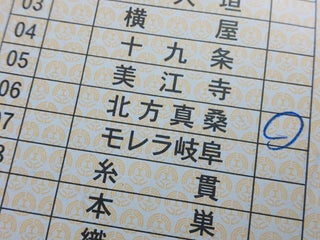 03 大垣
04 横屋
05 十九条
06 美江寺
07 北方真桑
モレラ岐阜
糸貫
本巣
織